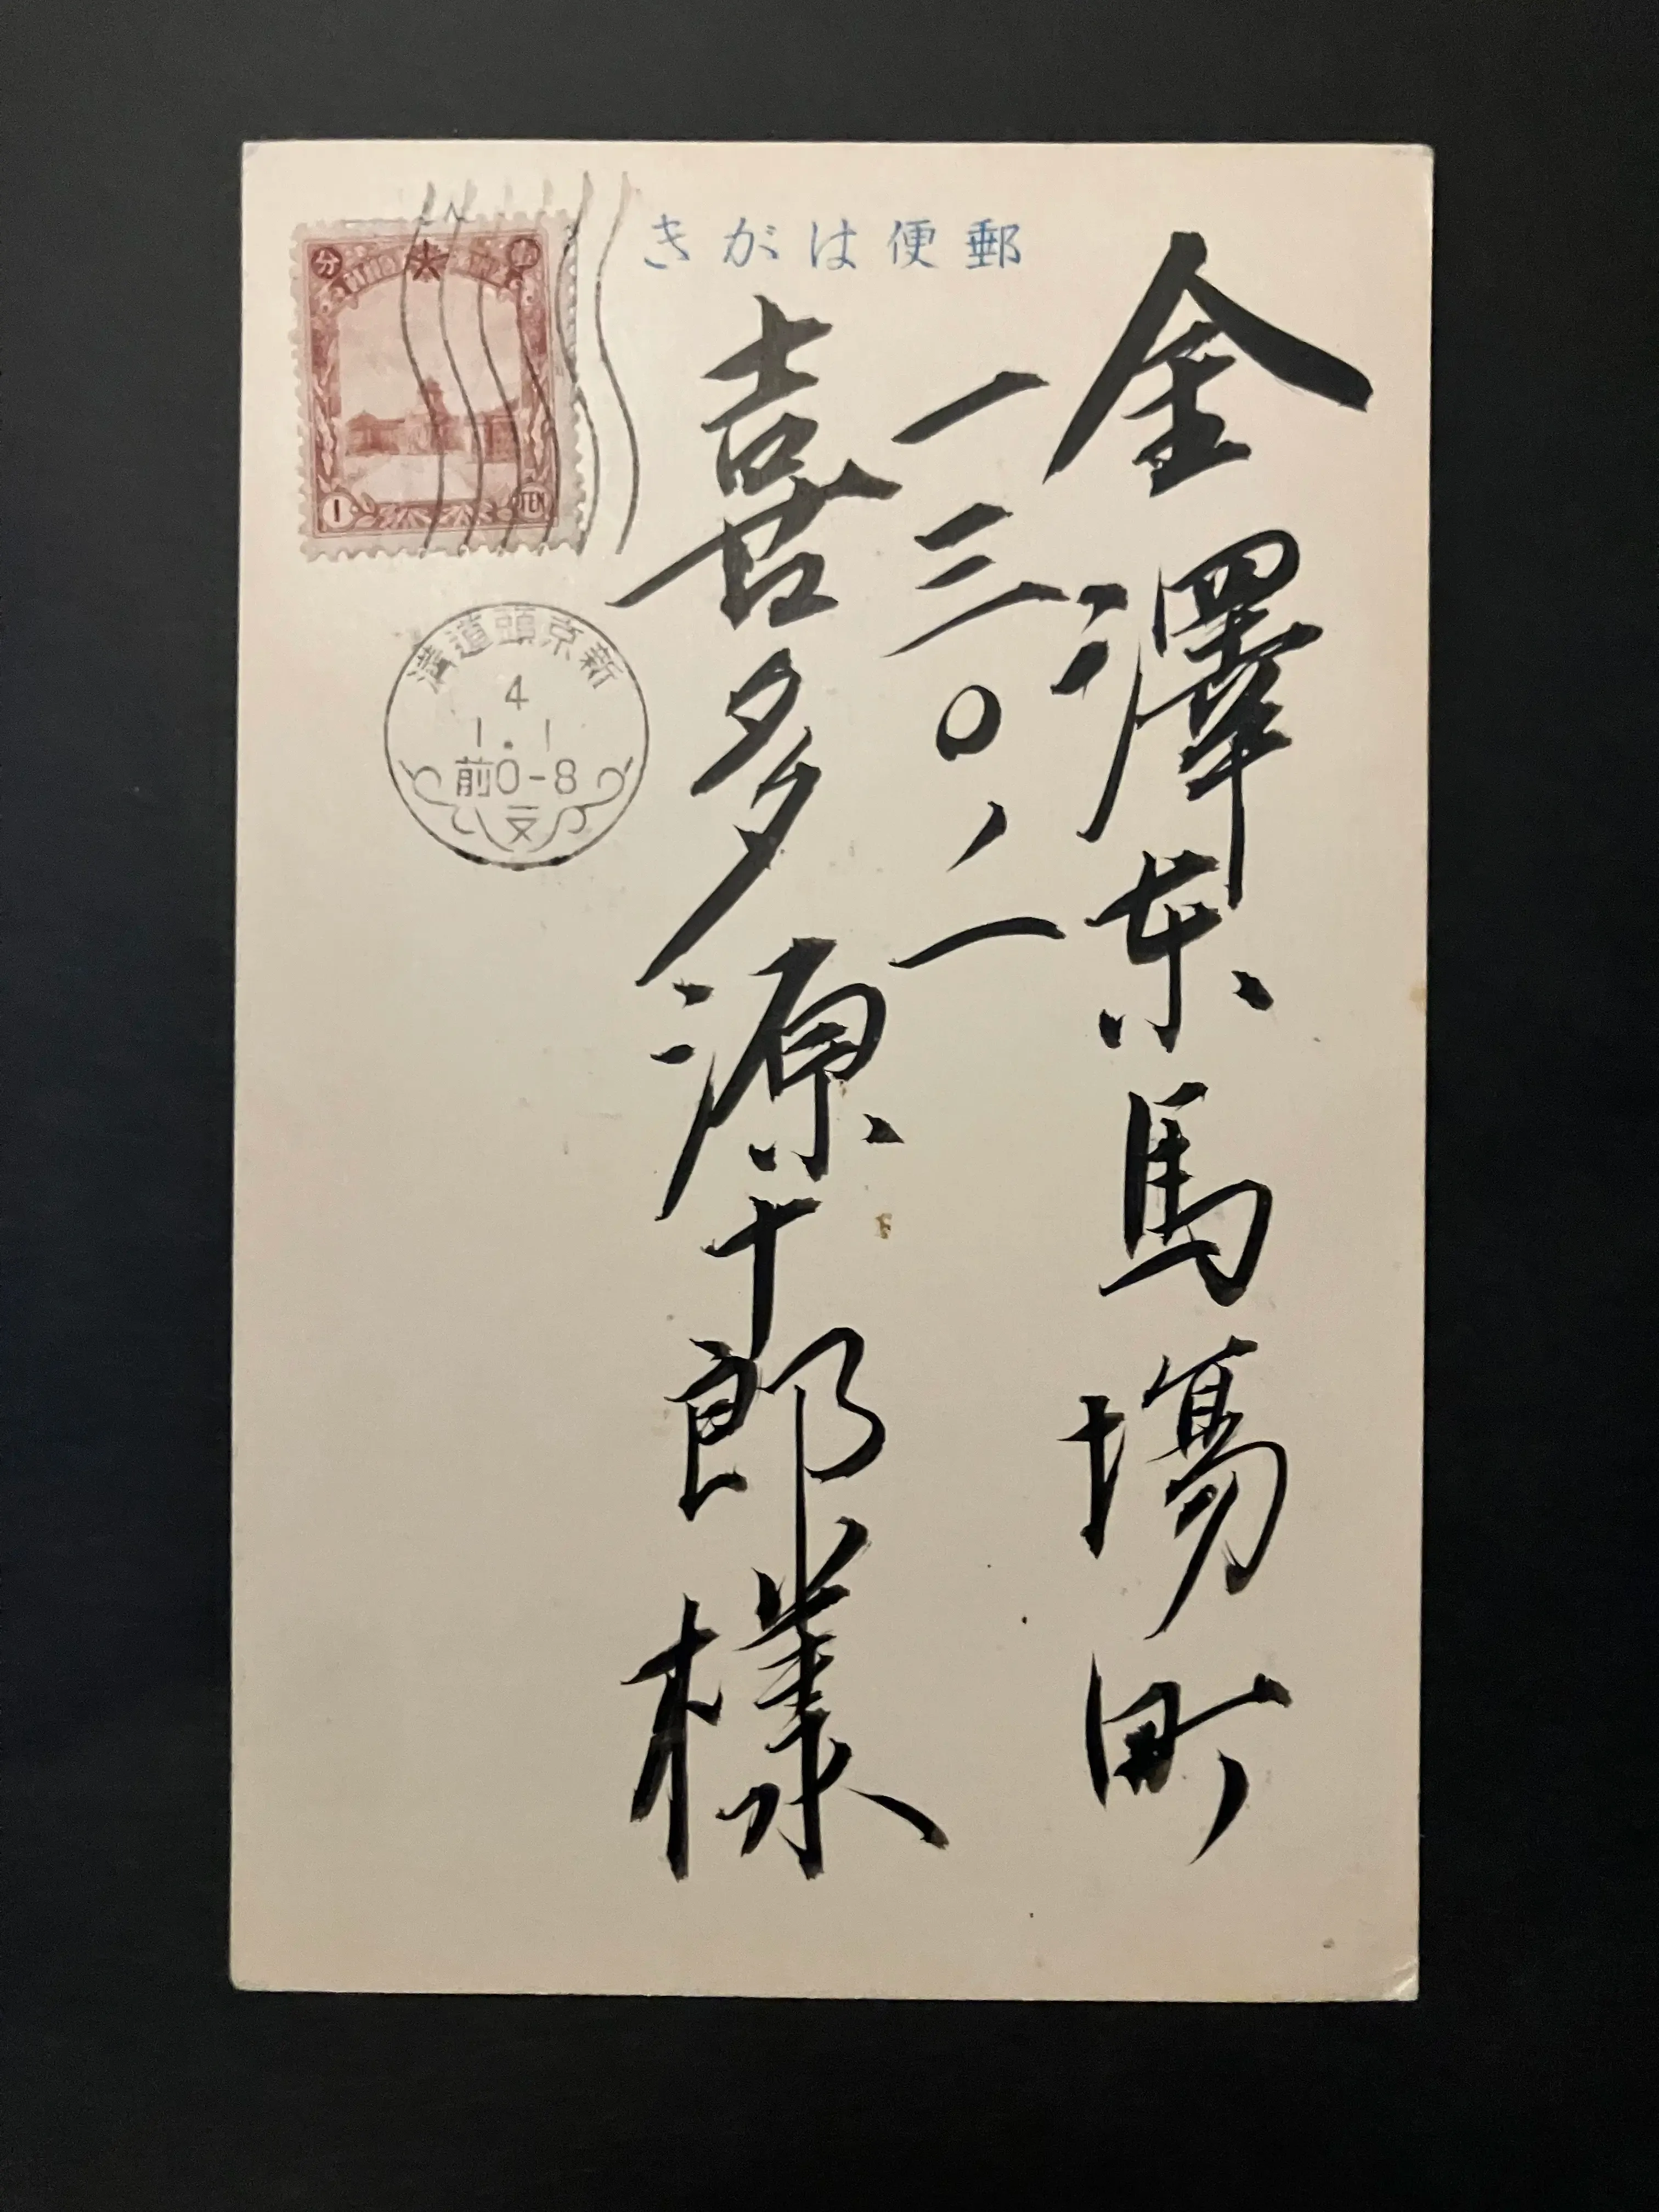 郵便はがき
金澤東馬場町
一三〇ノ一
喜多源十郎様
分
1
FEN
新京頭道溝
4
1.1
前0-8